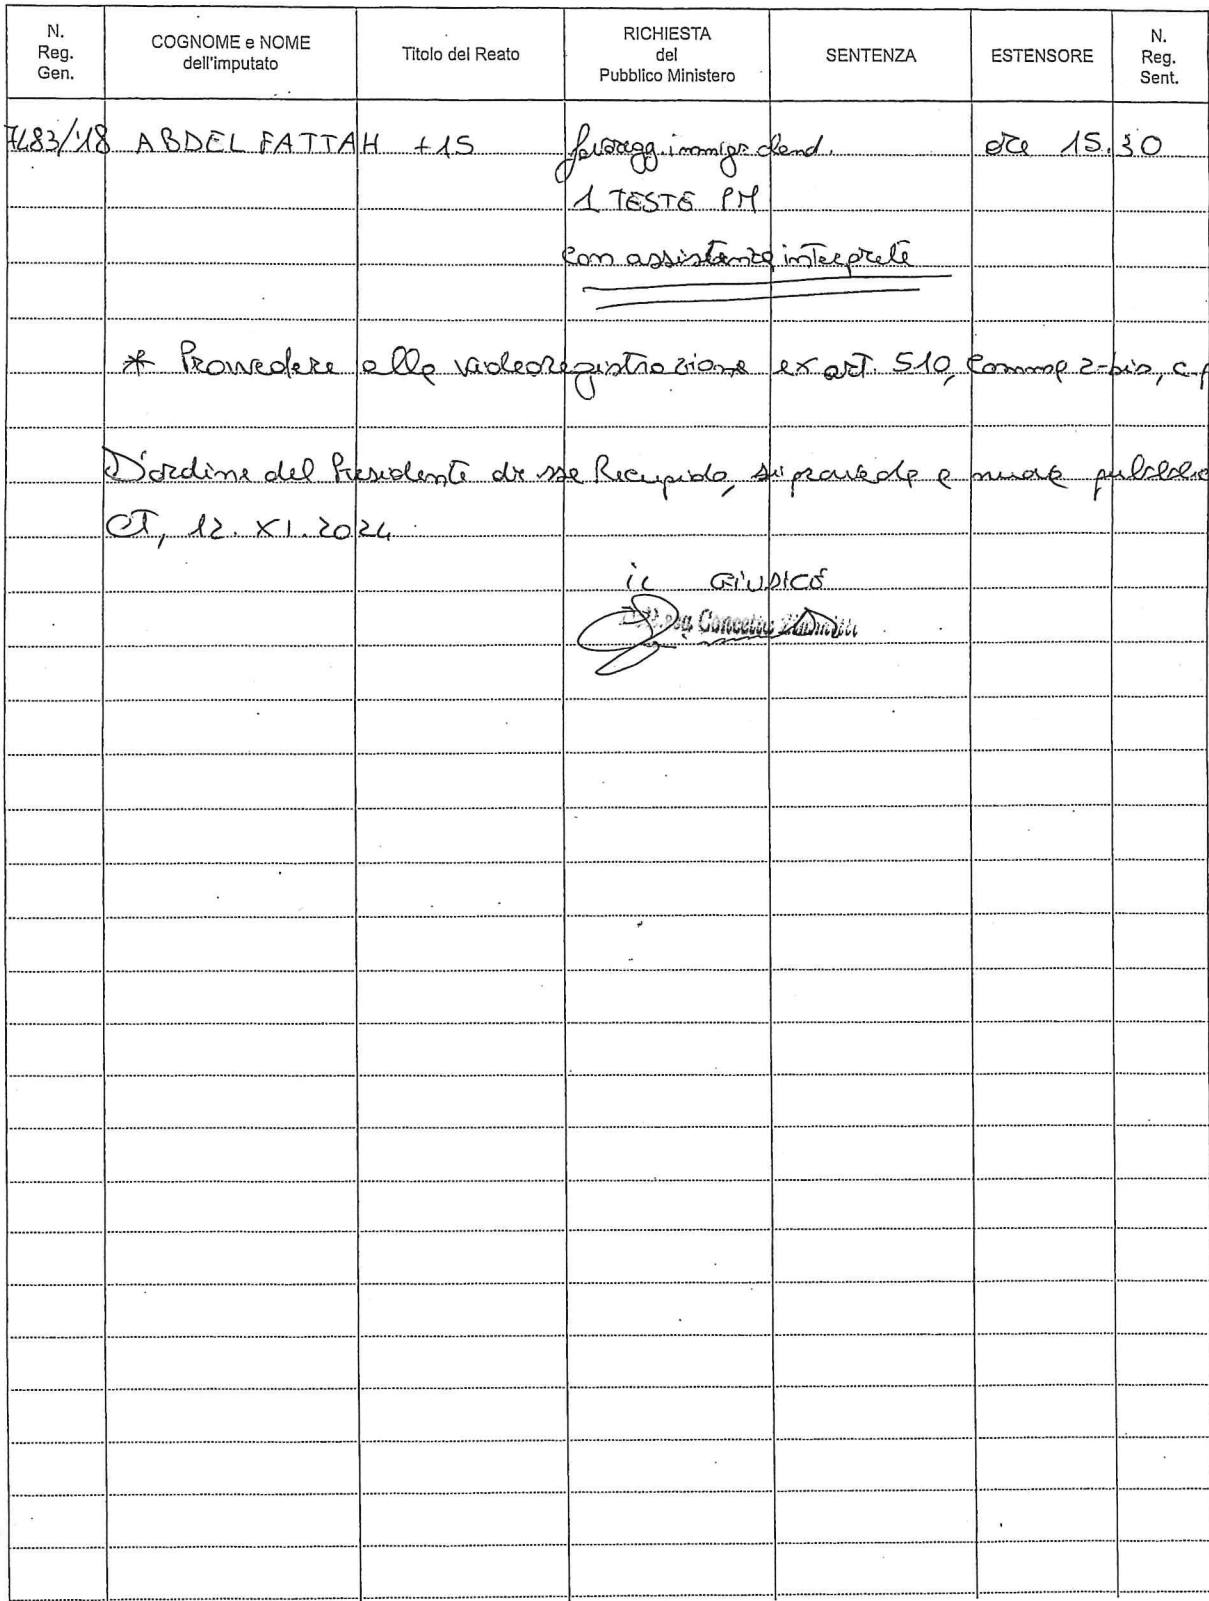 N. Reg. Gen.
COGNOME e NOME dell'imputato
Titolo del Reato
RICHIESTA del Pubblico Ministero
SENTENZA
ESTENSORE
N. Reg. Sent.
ABDEL FATTAH +15 favoregg. immigr. cland. ore 15.30
1 TESTE PM
con assistenza interprete
* Provvedere alla videoregistrazione ex art. 510, comma 2-bis, c.p
D'ordine del Presidente dr.ssa Recupido, si provvede a nuova pubblic
CT, 12. XI. 2024
il GIUDICE
Concetta